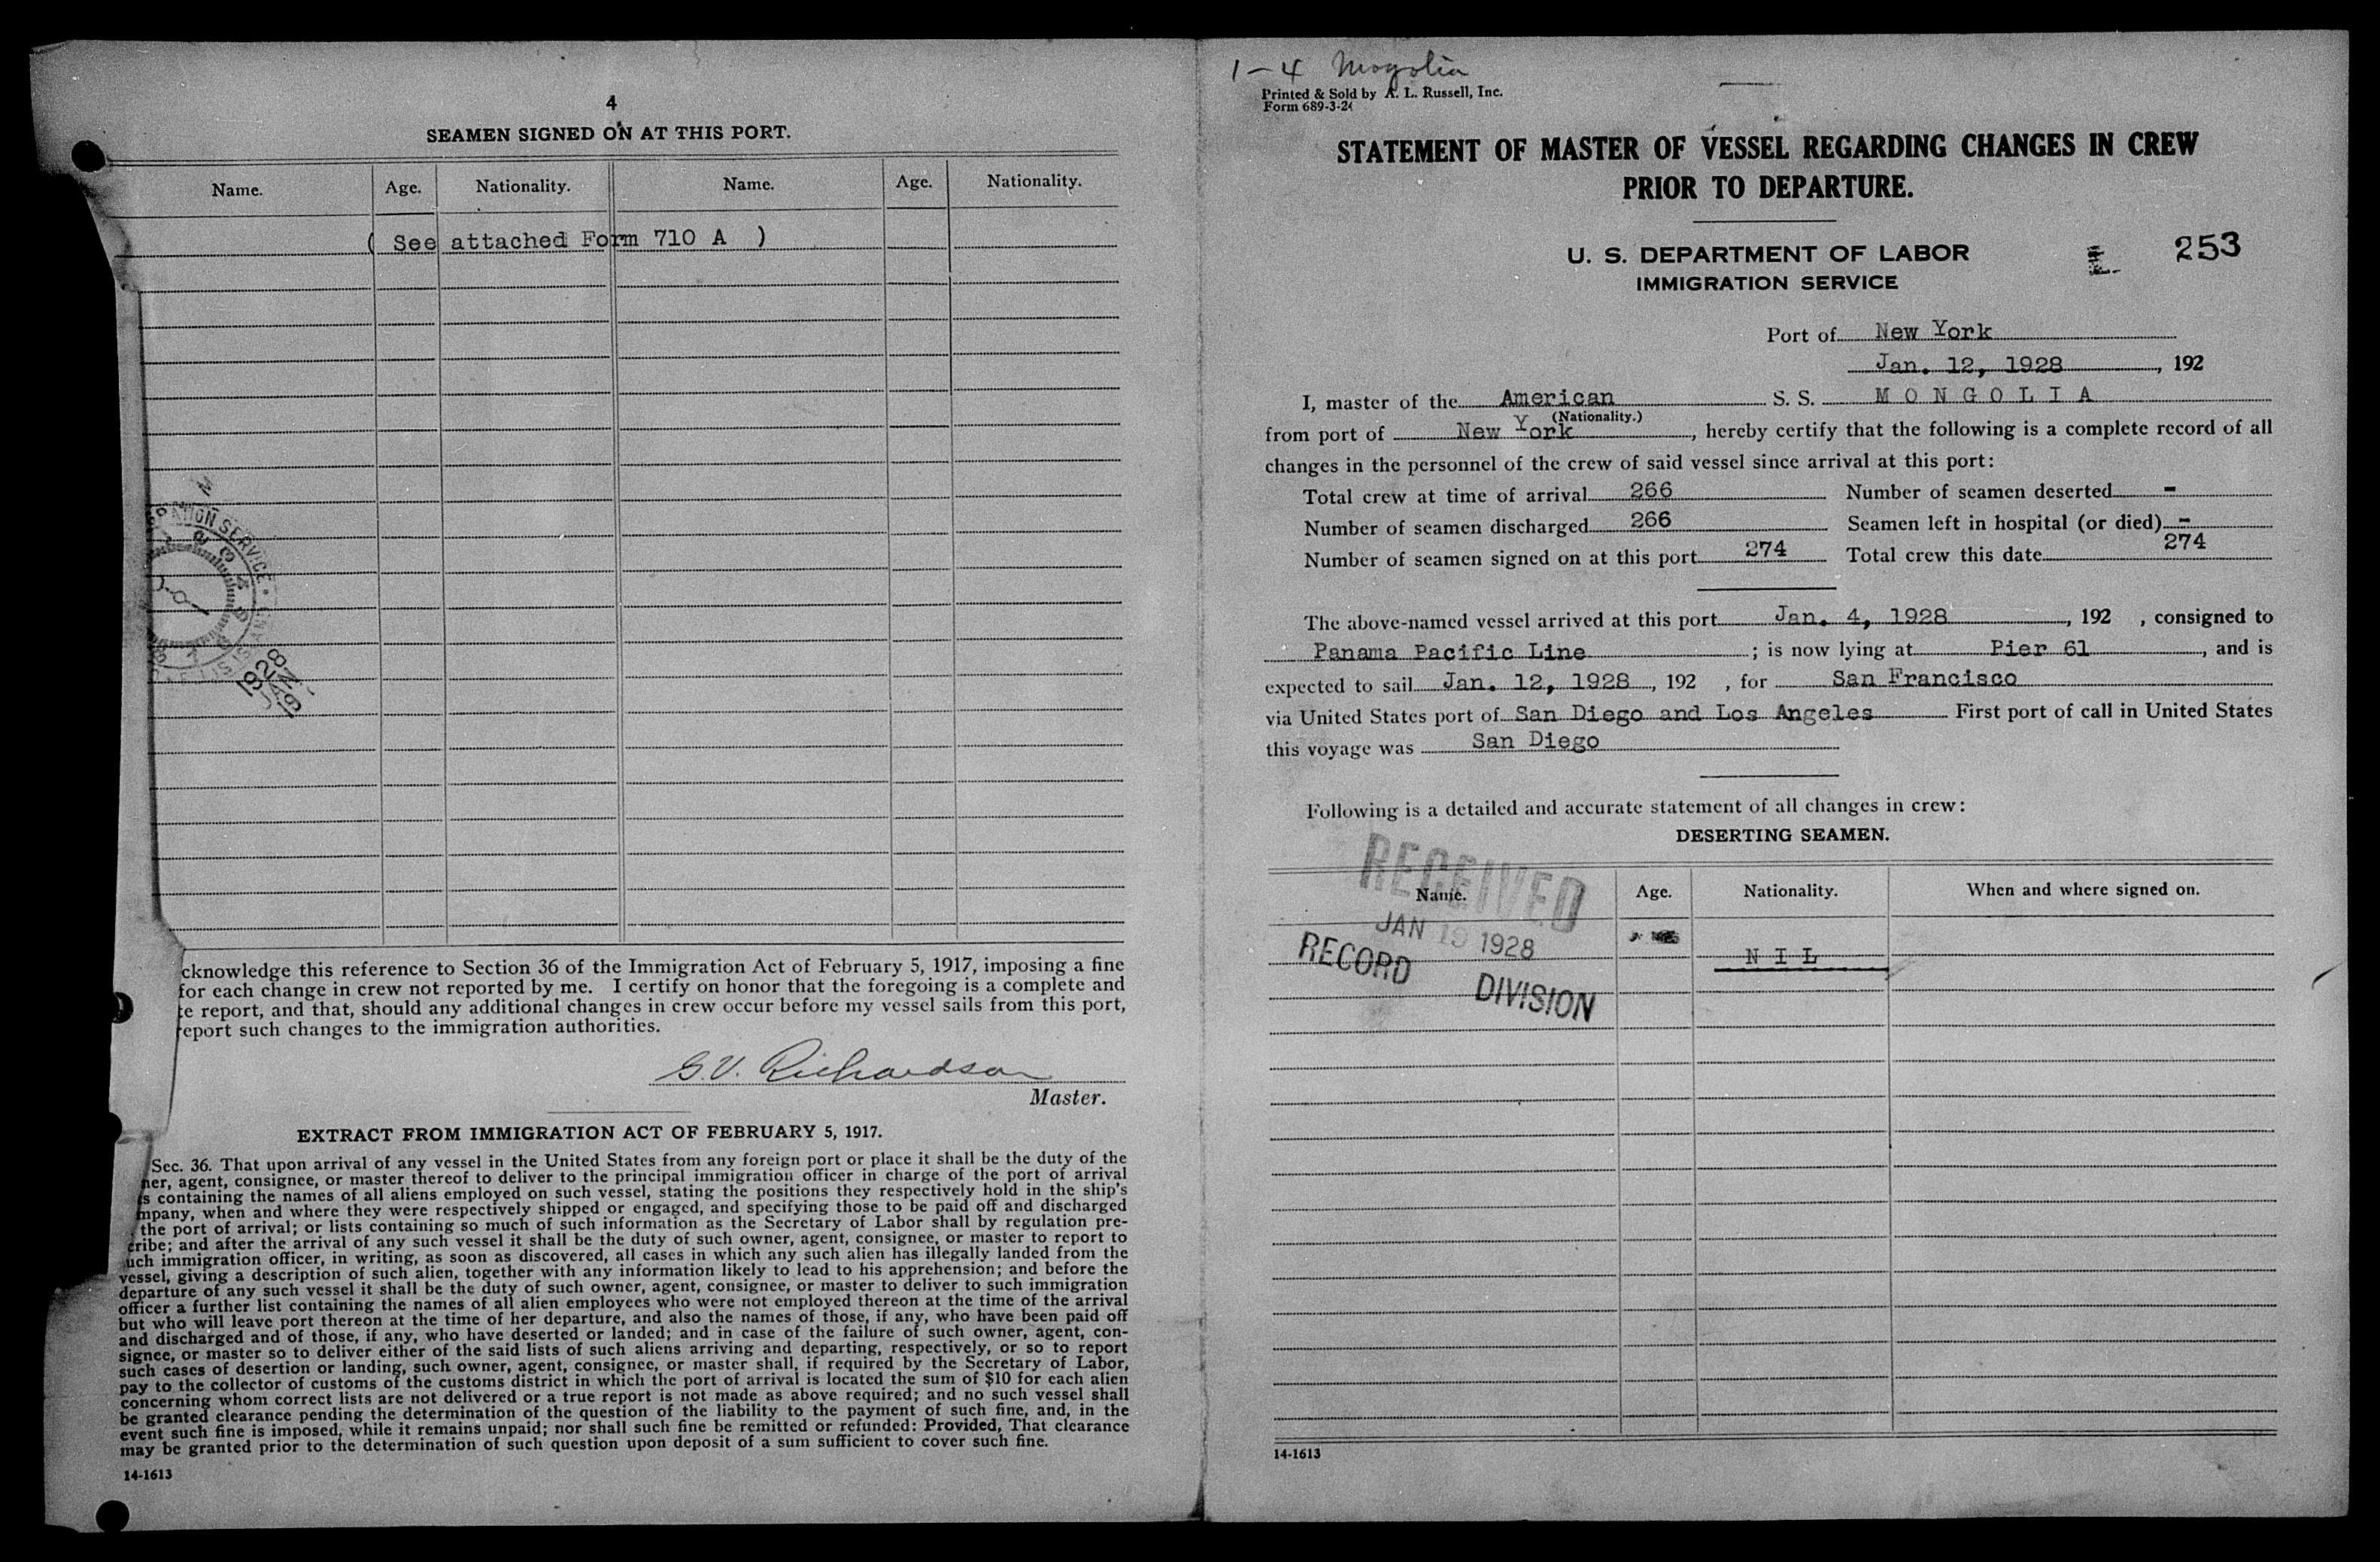 4
SEAMEN SIGNED ON AT THIS PORT.
Name. Age. Nationality. Name. Age. Nationality.
( See attached Form 710 A )
1928
cknowledge this reference to Section 36 of the Immigration Act of February 5, 1917, imposing a fine
for each change in crew not reported by me. I certify on honor that the foregoing is a complete and
e report, and that, should any additional changes in crew occur before my vessel sails from this port,
report such changes to the immigration authorities.
G.V. Richardson
Master.
EXTRACT FROM IMMIGRATION ACT OF FEBRUARY 5, 1917.
Sec. 36. That upon arrival of any vessel in the United States from any foreign port or place it shall be the duty of the
ner, agent, consignee, or master thereof to deliver to the principal immigration officer in charge of the port of arrival
s containing the names of all aliens employed on such vessel, stating the positions they respectively hold in the ship's
mpany, when and where they were respectively shipped or engaged, and specifying those to be paid off and discharged
the port of arrival; or lists containing so much of such information as the Secretary of Labor shall by regulation pre-
cribe; and after the arrival of any such vessel it shall be the duty of such owner, agent, consignee, or master to report to
uch immigration officer, in writing, as soon as discovered, all cases in which any such alien has illegally landed from the
vessel, giving a description of such alien, together with any information likely to lead to his apprehension; and before the
departure of any such vessel it shall be the duty of such owner, agent, consignee, or master to deliver to such immigration
officer a further list containing the names of all alien employees who were not employed thereon at the time of the arrival
but who will leave port thereon at the time of her departure, and also the names of those, if any, who have been paid off
and discharged and of those, if any, who have deserted or landed; and in case of the failure of such owner, agent, con-
signee, or master so to deliver either of the said lists of such aliens arriving and departing, respectively, or so to report
such cases of desertion or landing, such owner, agent, consignee, or master shall, if required by the Secretary of Labor,
pay to the collector of customs of the customs district in which the port of arrival is located the sum of $10 for each alien
concerning whom correct lists are not delivered or a true report is not made as above required; and no such vessel shall
be granted clearance pending the determination of the question of the liability to the payment of such fine, and, in the
event such fine is imposed, while it remains unpaid; nor shall such fine be remitted or refunded: Provided, That clearance
may be granted prior to the determination of such question upon deposit of a sum sufficient to cover such fine.
14-1613
1-4 Mogolia
Printed & Sold by A. L. Russell, Inc.
Form 689-3-24
STATEMENT OF MASTER OF VESSEL REGARDING CHANGES IN CREW
PRIOR TO DEPARTURE.
U. S. DEPARTMENT OF LABOR
253
IMMIGRATION SERVICE
Port of New York
Jan. 12, 1928, 192
I, master of the American S. S. MONGOLIA
(Nationality.)
from port of New York, hereby certify that the following is a complete record of all
changes in the personnel of the crew of said vessel since arrival at this port:
Total crew at time of arrival 266 Number of seamen deserted -
Number of seamen discharged 266 Seamen left in hospital (or died) -
Number of seamen signed on at this port 274 Total crew this date 274
The above-named vessel arrived at this port Jan. 4, 1928, 192 , consigned to
Panama Pacific Line ; is now lying at Pier 61, and is
expected to sail Jan. 12, 1928, 192 , for San Francisco
via United States port of San Diego and Los Angeles First port of call in United States
this voyage was San Diego
Following is a detailed and accurate statement of all changes in crew:
DESERTING SEAMEN.
RECEIVED
Name. Age. Nationality. When and where signed on.
JAN 19 1928
NIL
RECORD DIVISION
14-1613